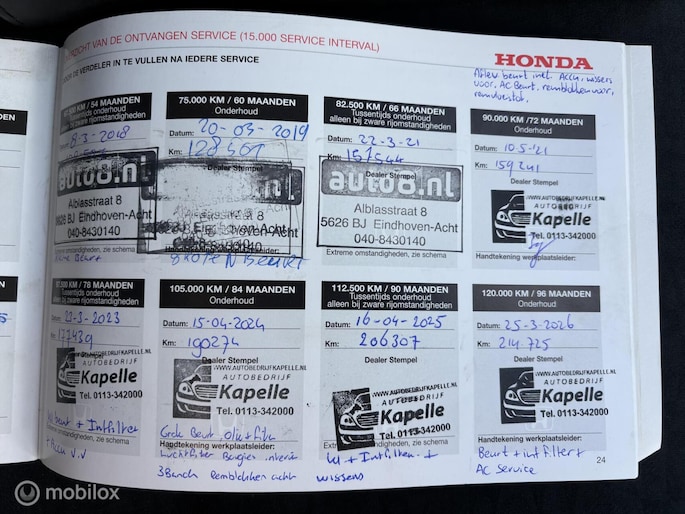 ZICHT VAN DE ONTVANGEN SERVICE (15.000 SERVICE INTERVAL)
HONDA
DOOR DE VERDELER IN TE VULLEN NA IEDERE SERVICE
Aflev beurt inkl. Accu, wissers
voor, AC Beurt, remblokken voor,
/ 54 MAANDEN
Tussentijds onderhoud
alleen bij zware rijomstandigheden
8-3-2018
auto8.nl
Alblasstraat 8
5626 BJ Eindhoven-Acht
040-8430140
75.000 KM / 60 MAANDEN
Onderhoud
Datum: 20-03-2019
Km:
Dealer Stempel
82.500 KM / 66 MAANDEN
Tussentijds onderhoud
alleen bij zware rijomstandigheden
Datum: 22-3-21
Km: 157544
Dealer Stempel
auto8.nl
Alblasstraat 8
5626 BJ Eindhoven-Acht
040-8430140
Extreme omstandigheden, zie schema
90.000 KM /72 MAANDEN
Onderhoud
Datum: 10-5-'21
Km: 159241
Dealer Stempel
Kapelle
Tel. 0113-342000
Handtekening werkplaatsleider:
/ 78 MAANDEN
Tussentijds onderhoud
alleen bij zware rijomstandigheden
3-2023
177439
WWW.AUTOBEDRIJFKAPELLE.NL
AUTOBEDRIJF
Kapelle
Tel. 0113-342000
beurt + Intfilter
+ Accu v.v
105.000 KM / 84 MAANDEN
Onderhoud
Datum: 15-04-2024
Km: 190274
Dealer Stempel
WWW.AUTOBEDRIJFKAPELLE.NL
AUTOBEDRIJF
Kapelle
Tel. 0113-342000
Grote Beurt, olie+filter
Luchtfilter Bougies interieur
Remblokken achter
112.500 KM / 90 MAANDEN
Tussentijds onderhoud
alleen bij zware rijomstandigheden
Datum: 16-04-2025
Km: 206307
Dealer Stempel
WWW.AUTOBEDRIJFKAPELLE.NL
AUTOBEDRIJF
Kapelle
Tel. 0113-342000
+ Intfilter +
wissers
120.000 KM / 96 MAANDEN
Onderhoud
Datum: 25-3-2026
Km: 214.725
Dealer Stempel
WWW.AUTOBEDRIJFKAPELLE.NL
AUTOBEDRIJF
Kapelle
Tel. 0113-342000
Handtekening werkplaatsleider:
Beurt + intfilter +
AC Service
24
mobilox